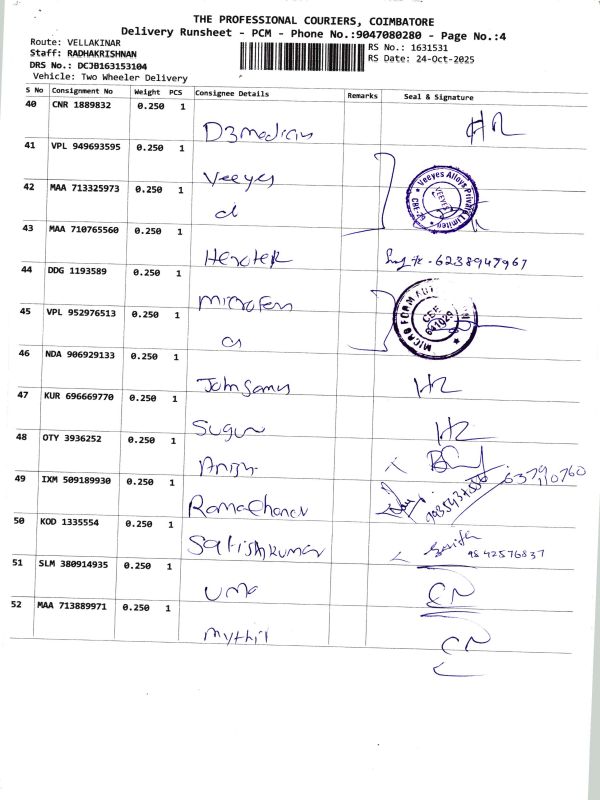 THE PROFESSIONAL COURIERS, COIMBATORE
Delivery Runsheet - PCM - Phone No.:9047080280 - Page No.:4
Route: VELLAKINAR
RS No.: 1631531
Staff: RADHAKRISHNAN
RS Date: 24-Oct-2025
DRS No.: DCJB163153104
Vehicle: Two Wheeler Delivery
S No Consignment No Weight PCS Consignee Details Remarks Seal & Signature
40 CNR 1889832 0.250 1
D3 medicin HR
41 VPL 949693595 0.250 1
Veeyes Veeyes Alloys Private Limited
42 MAA 713325973 0.250 1
43 MAA 710765560 0.250 1
6238947967
44 DDG 1193589 0.250 1
Microform
45 VPL 952976513 0.250 1
MICRO FORM
46 NDA 906929133 0.250 1
John Samy HR
47 KUR 696669770 0.250 1
Sugun HR
48 OTY 3936252 0.250 1
49 IXM 509189930 0.250 1
Ramachander
50 KOD 1335554 0.250 1
Satishkumar 9842576837
51 SLM 380914935 0.250 1
Uma
52 MAA 713889971 0.250 1
Mythil